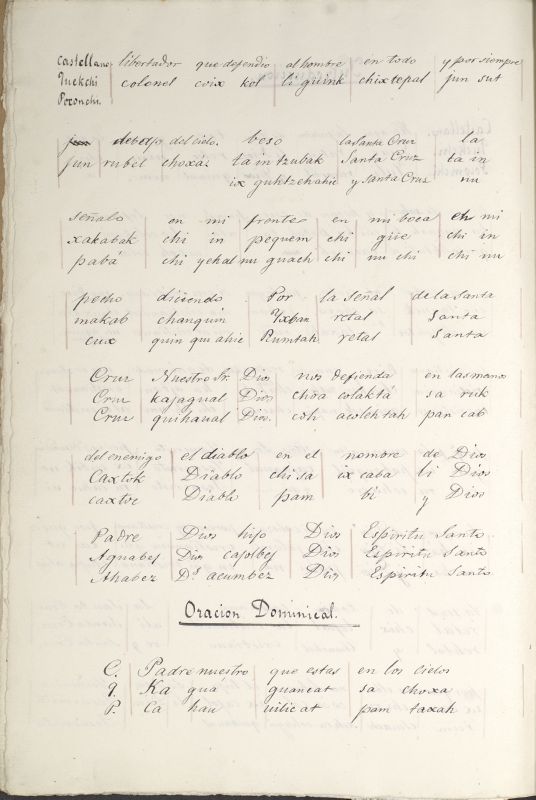 Castellano libertador que defendio al hombre en todo y por siempre
Quekchi colonel coix kol li guink chixtepal jun sut
Poconchi.
debajo del cielo. beso la Santa Cruz la
jun rubel choxa. ta in tzubak Santa Cruz ta in
ix guhtzehahic y Santa Cruz nu
señalo en mi frente en mi boca en mi
xakabak chi in pequem chi güe chi in
pabá chi yehal nu guach chi nu chi chi nu
pecho diciendo Por la señal de la Santa
makab chanquin Yxban retal Santa
cux quin qui ahic Rumtah retal Santa
Cruz Nuestro Sr. Dios nos defienda en las manos
Cruz kajagual Dios choa colaktá sa ruk
Cruz quihaual Dios. coh acolehtah pan cab
del enemigo el diablo en el nombre de Dios
Caxtok Diablo chi sa ix caba li Dios
caxtoc Diablo pam bi y Dios
Padre Dios hijo Dios Espiritu Santo.
Aguabej Dios cajolbej Dios Espiritu Santo
Ahabez Ds acumbez Dios Espiritu Santo
Oracion Dominical.
C. Padre nuestro que estas en los cielos
q. Ka gua guancat sa choxa
P. Ca hau uilicat pam taxah